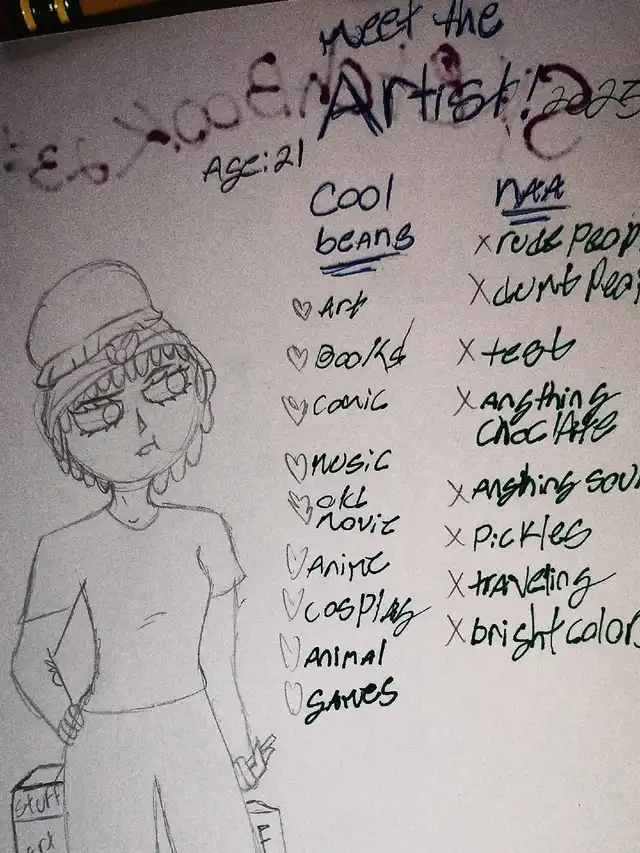 Meet the
Artist! 2025
Age: 21
Cool
beans
Art
Books
Comic
Music
Old
Movie
Anime
Cosplay
Animal
Games
NAA
x rude peop
x dumb Peo
x test
x Anything
choclAte
x Anything sour
x Pickles
x traveling
x bright color
Stuff
Art